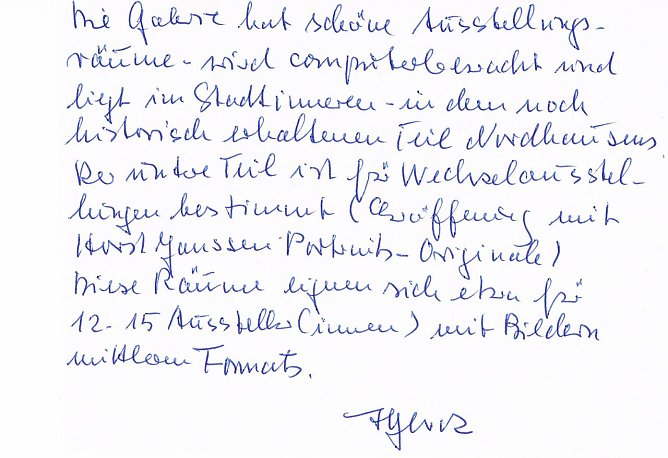 Die Galerie hat schöne Ausstellungs-
räume - wird computerbewacht und
liegt im Stadtinneren - in dem noch
historisch erhaltenen Teil Nordhausens.
Der untere Teil ist für Wechselausstel-
lungen bestimmt (Eröffnung mit
Horst Janssen Portraits - Originale)
Diese Räume eignen sich etwa für
12 - 15 Aussteller(innen) mit Bildern
mittleren Formats.